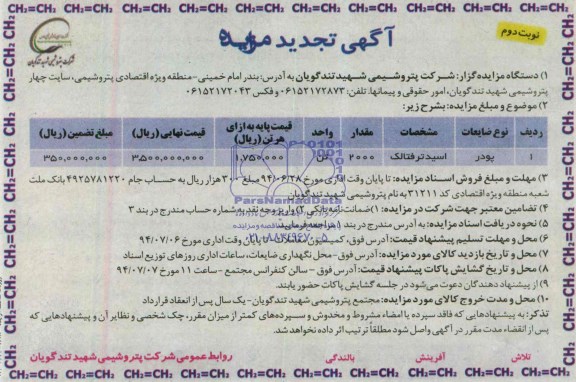 CH₂=CH₂ CH₂=CH₂ CH₂=CH₂ CH₂=CH₂ CH₂=CH₂ CH₂=CH₂ CH₂=CH₂ CH₂=CH₂
نوبت دوم
آگهی تجدید مزایده
شرکت پتروشیمی شهید تندگویان
۱) دستگاه مزایده گزار: شرکت پتروشیمی شهید تندگویان به آدرس: بندر امام خمینی-منطقه ویژه اقتصادی پتروشیمی، سایت چهار
پتروشیمی شهید تندگویان، امور حقوقی و پیمانها. تلفن: ۰۶۱۵۲۱۷۲۸۷۳ و فکس ۰۶۱۵۲۱۷۲۰۴۳
۲) موضوع و مبلغ مزایده: بشرح زیر:
ردیف نوع ضایعات مشخصات مقدار واحد قیمت پایه به ازای هر تن (ریال) قیمت نهایی (ریال) مبلغ تضمین (ریال)
۱ پودر اسید ترفتالیک ۲۰۰۰ تن ۱,۷۵۰,۰۰۰ ۳,۵۰۰,۰۰۰,۰۰۰ ۳۵۰,۰۰۰,۰۰۰
۳) مهلت و مبلغ فروش اسناد مزایده: تا پایان وقت اداری مورخ ۹۴/۰۶/۲۸ مبلغ ۳۰۰ هزار ریال به حساب جام ۴۹۲۵۷۸۱۲۲۰ بانک ملت
شعبه منطقه ویژه اقتصادی کد ۳۱۲۱۱ به نام پتروشیمی شهید تندگویان
۴) تضامین معتبر جهت شرکت در مزایده: ۱) ضمانت نامه بانکی ۲) واریز وجه نقد به شماره حساب مندرج در بند ۳
۵) نحوه دریافت اسناد مزایده: به آدرس مندرج در بند ۱ مراجعه فرمایید.
۶) محل و مهلت تسلیم پیشنهاد قیمت: آدرس فوق، کمیسیون معاملات تا پایان وقت اداری مورخ ۹۴/۰۷/۰۶
۷) محل و تاریخ بازدید کالای مورد مزایده: آدرس فوق-محل نگهداری ضایعات، ساعات اداری روزهای توزیع اسناد
۸) محل و تاریخ گشایش پاکات پیشنهاد قیمت: آدرس فوق - سالن کنفرانس مجتمع - ساعت ۱۱ مورخ ۹۴/۰۷/۰۷
۹) از پیشنهاد دهندگان دعوت می‌شود در جلسه گشایش پاکات حضور یابند.
۱۰) محل و مدت خروج کالای مورد مزایده: مجتمع پتروشیمی شهید تندگویان-یک سال پس از انعقاد قرارداد
تذکر: به پیشنهادهایی که فاقد سپرده یا امضاء مشروط و مخدوش و سپرده‌های کمتر از میزان مقرر، چک شخصی و نظایر آن و پیشنهادهایی که
پس از انقضاء مدت مقرر در آگهی واصل شود مطلقاً ترتیب اثر داده نخواهد شد.
تلاش آفرینش بالندگی روابط عمومی شرکت پتروشیمی شهید تندگویان
ParsNamadData
CH₂=CH₂ CH₂=CH₂ CH₂=CH₂ CH₂=CH₂ CH₂=CH₂ CH₂=CH₂ CH₂=CH₂ CH₂=CH₂